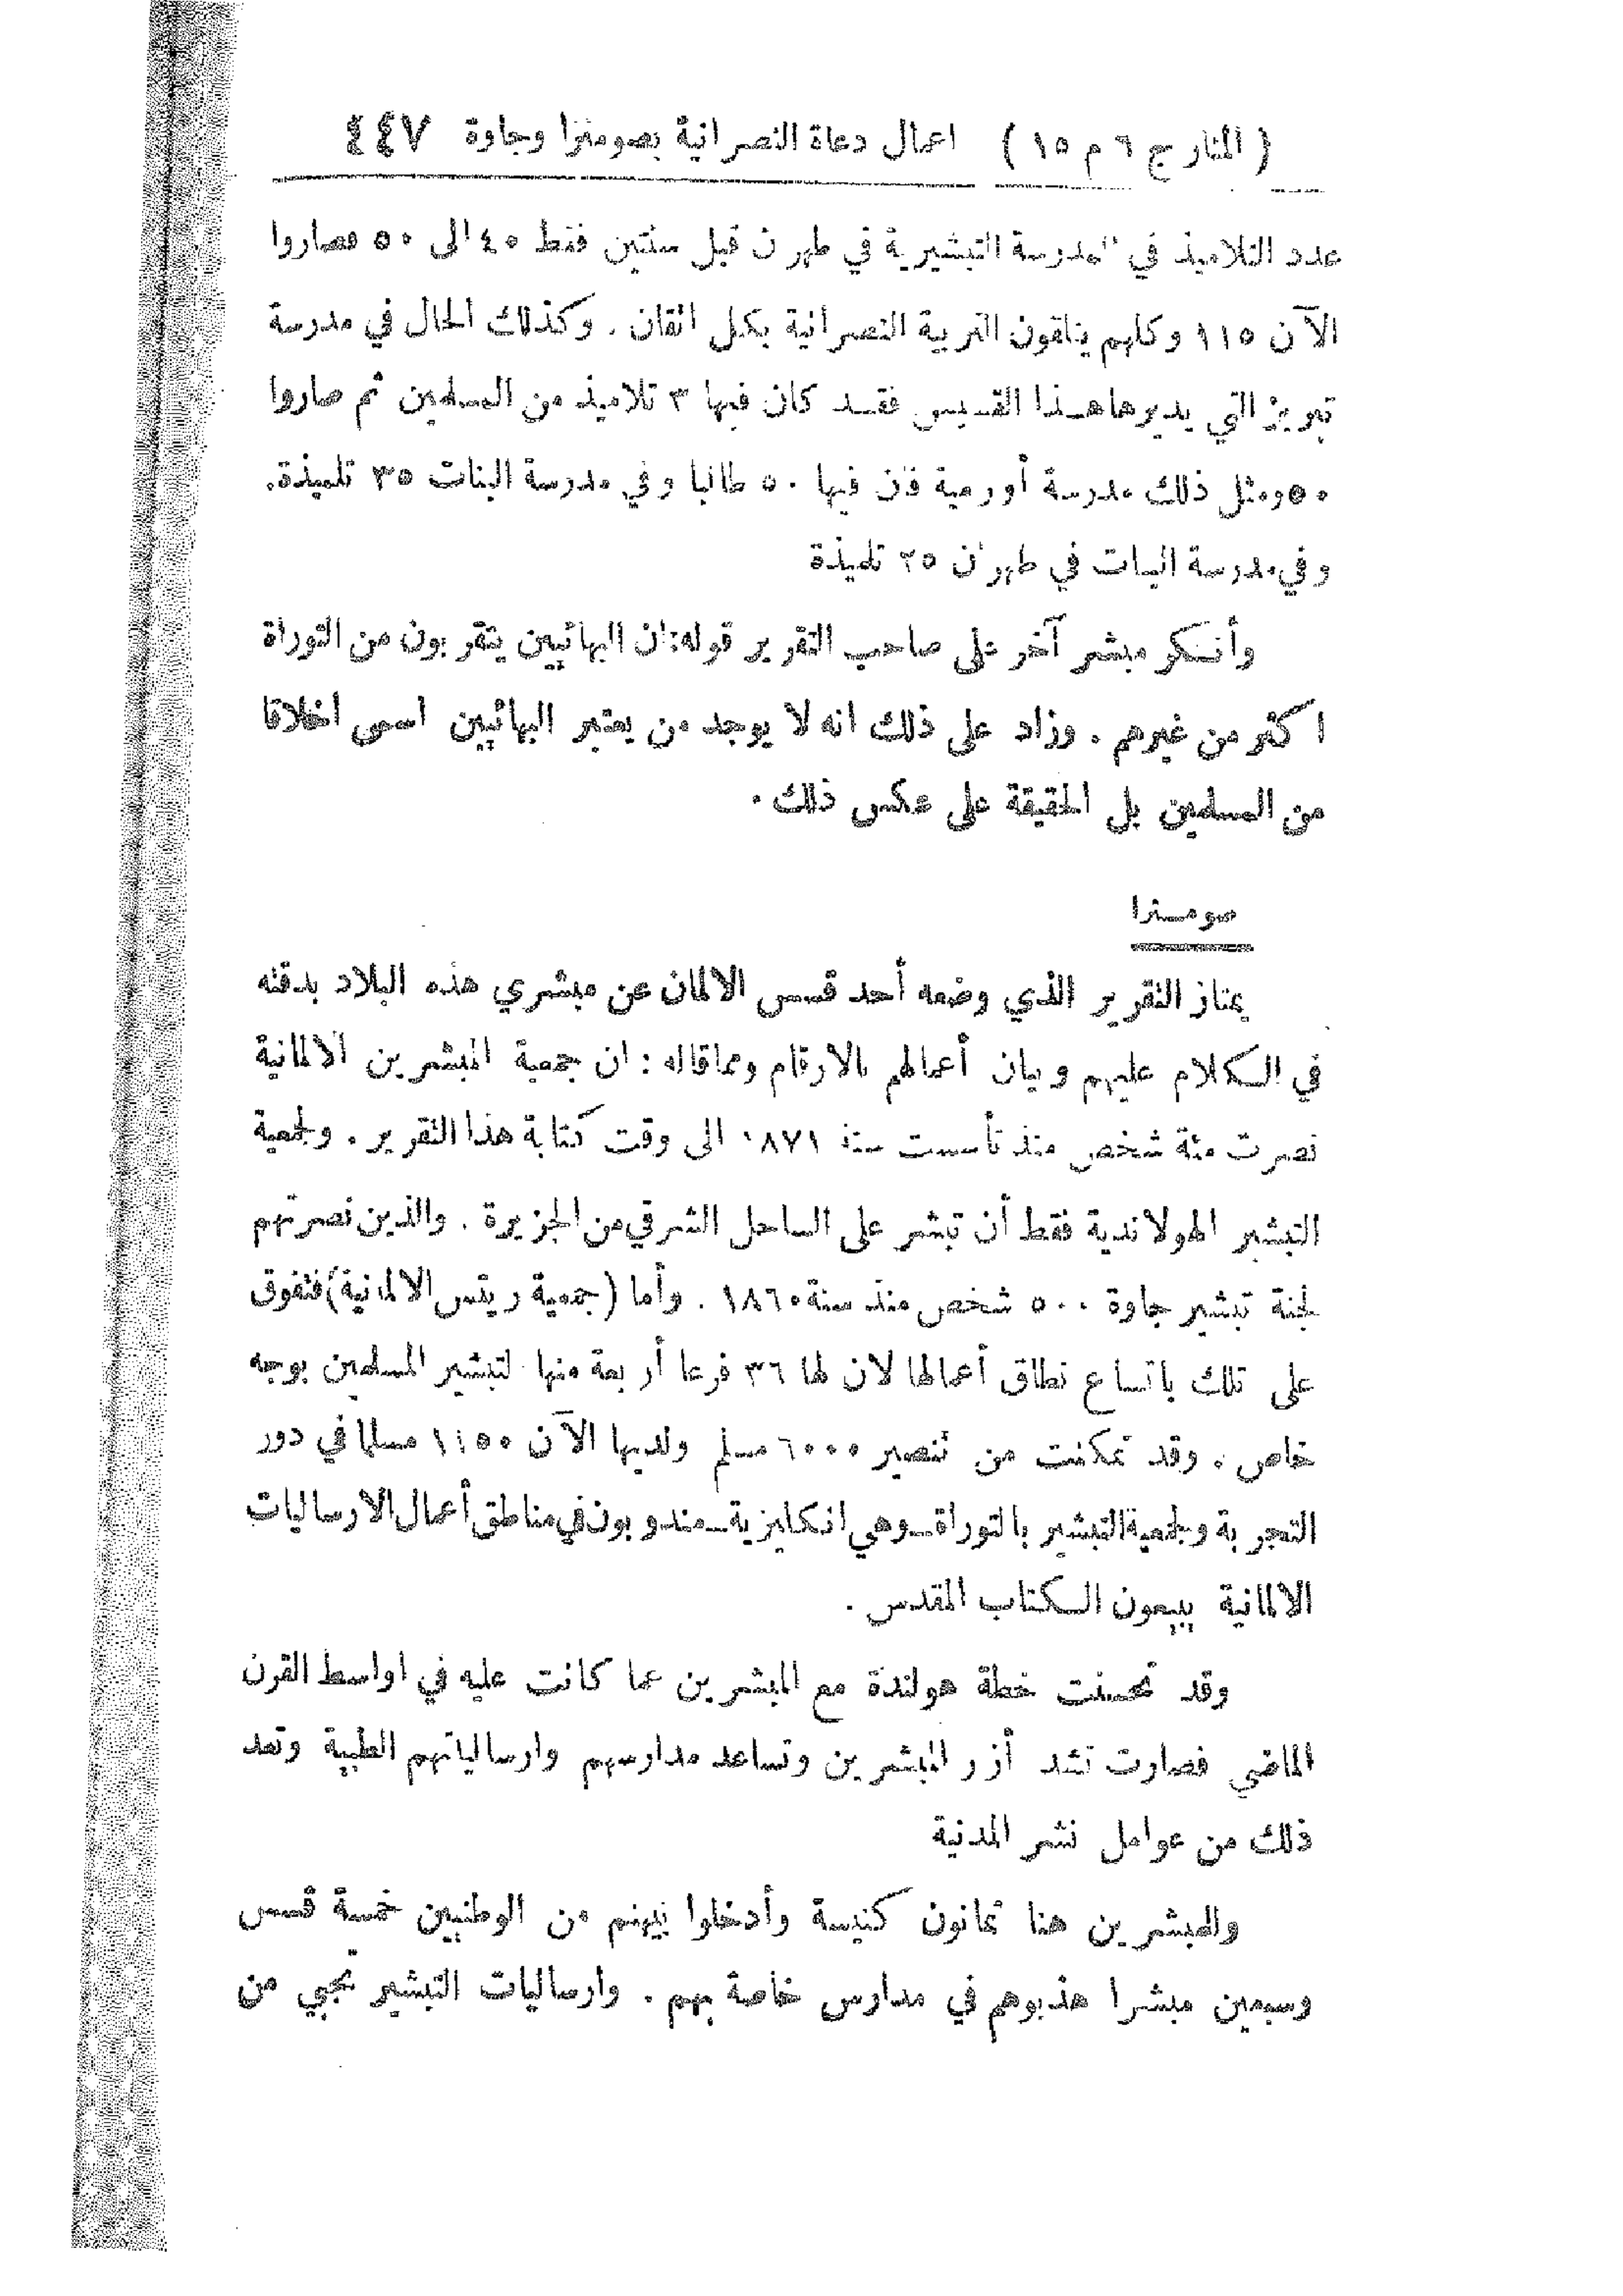 ( المنار ج ٦ م ١٥ ) اعمال دعاة النصرانية بصومترا وجاوة ٤٤٧
عدد التلاميذ في المدرسة التبشيرية في طهران قبل سنتين فقط ٤٠ الى ٥٠ فصاروا
الآن ١١٥ وكلهم يتلقون التربية النصرانية بكل اتقان . وكذلك الحال في مدرسة
تبريز التي يديرها هذا القسيس فقد كان فيها ٣ تلاميذ من المسلمين ثم صاروا
٥٠ ومثل ذلك مدرسة أورمية فان فيها ٥٠ طالبا وفي مدرسة البنات ٣٥ تلميذة.
وفي مدرسة البنات في طهران ٢٥ تلميذة
وأنكر مبشر آخر على صاحب التقرير قوله: ان البهائيين يتقربون من التوراة
اكثر من غيرهم . وزاد على ذلك انه لا يوجد من يعتبر البهائيين اسمى اخلاقا
من المسلمين بل الحقيقة على عكس ذلك .
صومترا
يمتاز التقرير الذي وضعه أحد قسس الالمان عن مبشري هذه البلاد بدقته
في الكلام عليهم وبيان أعمالهم بالارقام ومما قاله : ان جمعية المبشرين الالمانية
نصرت مئة شخص منذ تأسست سنة ١٨٧١ الى وقت كتابة هذا التقرير . ولجمعية
التبشير الهولاندية فقط أن تبشر على الساحل الشرقي من الجزيرة . والذين نصرتهم
لجنة تبشير جاوة ٥٠٠ شخص منذ سنة ١٨٦٠ . وأما (جمعية رينس الالمانية) فتفوق
على تلك باتساع نطاق أعمالها لان لها ٣٦ فرعا أربعة منها لتبشير المسلمين بوجه
خاص . وقد تمكنت من تنصير ٦٠٠٠ مسلم ولديها الآن ١١٥٠ مسلما في دور
التجربة ولجمعية التبشير بالتوراة ــ وهي انكليزية ــ مندوبون في مناطق أعمال الارساليات
الالمانية يبيعون الكتاب المقدس .
وقد تحسنت خطة هولندة مع المبشرين عما كانت عليه في اواسط القرن
الماضي فصارت تشد أزر المبشرين وتساعد مدارسهم وارسالياتهم الطبية وتعد
ذلك من عوامل نشر المدنية
وللمبشرين هنا ثمانون كنيسة وأدخلوا بينهم من الوطنيين خمسة قسس
وسبعين مبشرا هذبوهم في مدارس خاصة بهم . وارساليات التبشير تجبي من